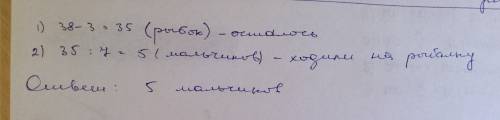 1) 38 - 3 = 35 (рыбок) - осталось
2) 35 : 7 = 5 (мальчиков) - ходили на рыбалку
Ответ: 5 мальчиков